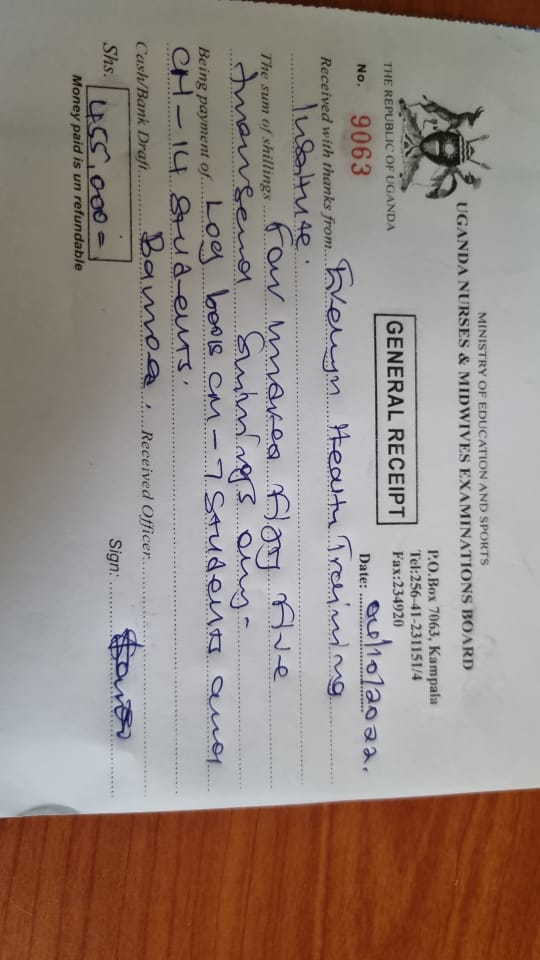 MINISTRY OF EDUCATION AND SPORTS
UGANDA NURSES & MIDWIVES EXAMINATIONS BOARD
THE REPUBLIC OF UGANDA
P.O.Box 7063, Kampala
Tel:256-41-231151/4
Fax:234920
GENERAL RECEIPT
No. 9063
Date: 06/10/2022.
Received with thanks from Evelyn Health Training
Institute.
The sum of shillings Four Hundred fifty five
Thousand Shillings only-
Being payment of Log books CM - 7 Students and
CH - 14 Students.
Cash/Bank Draft Baroda. Received Officer
Shs. 455,000=
Sign:
Money paid is un refundable